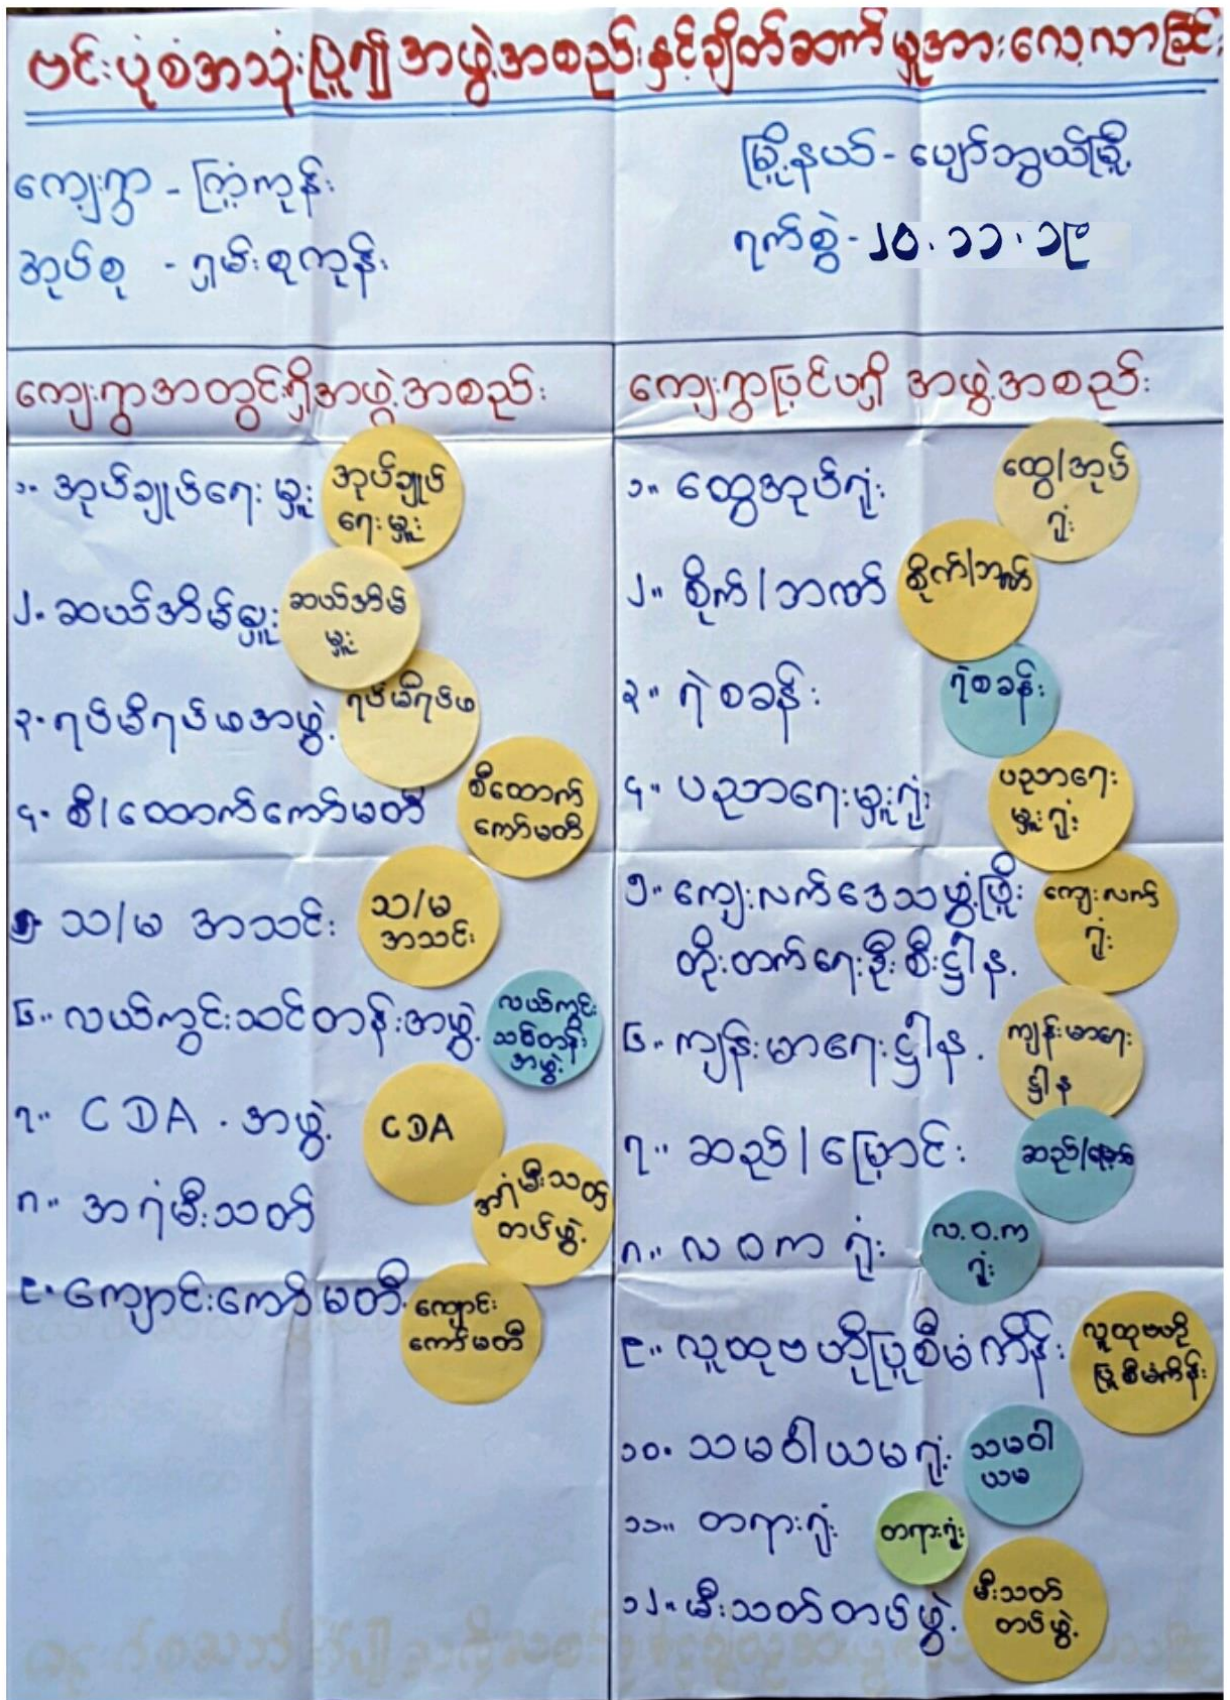 ဗင်းပုံစံအသုံးပြု၍ အဖွဲ့အစည်းနှင့်ချိတ်ဆက်မှုအားလေ့လာခြင်း
ကျေးရွာ - ကြံ့ကုန်း
မြို့နယ် - ပျော်ဘွယ်မြို့
အုပ်စု - ရှမ်းစုကုန်း
ရက်စွဲ - ၂၀.၁၁.၁၉
ကျေးရွာအတွင်းရှိအဖွဲ့အစည်း
၁။ အုပ်ချုပ်ရေးမှူး
အုပ်ချုပ်
ရေးမှူး
၂။ ဆယ်အိမ်မှူး
ဆယ်အိမ်
မှူး
၃။ ရပ်မိရပ်ဖအဖွဲ့
ရပ်မိရပ်ဖ
၄။ စီ/ထောက်ကော်မတီ
စီထောက်
ကော်မတီ
၅။ သ/မ အသင်း
သ/မ
အသင်း
၆။ လယ်ကွင်းသင်တန်းအဖွဲ့
လယ်ကွင်း
သင်တန်း
အဖွဲ့
၇။ CDA အဖွဲ့
CDA
၈။ အရံမီးသတ်
အရံမီးသတ်
တပ်ဖွဲ့
၉။ ကျောင်းကော်မတီ
ကျောင်း
ကော်မတီ
ကျေးရွာပြင်ပရှိ အဖွဲ့အစည်း
၁။ ထွေအုပ်ရုံး
ထွေ/အုပ်
ရုံး
၂။ စိုက်/ဘဏ်
စိုက်/ဘဏ်
၃။ ရဲစခန်း
ရဲစခန်း
၄။ ပညာရေးမှူးရုံး
ပညာရေး
မှူးရုံး
၅။ ကျေးလက်ဒေသဖွံ့ဖြိုး
တိုးတက်ရေးဦးစီးဌာန
ကျေးလက်
ရုံး
၆။ ကျန်းမာရေးဌာန
ကျန်းမာရေး
ဌာန
၇။ ဆည်/မြောင်း
ဆည်/မြောင်း
၈။ လ ဝ က ရုံး
လ.ဝ.က
ရုံး
၉။ လူထုဗဟိုပြုစီမံကိန်း
လူထုဗဟို
ပြုစီမံကိန်း
၁၀။ သမဝါယမရုံး
သမဝါ
ယမ
၁၁။ တရားရုံး
တရားရုံး
၁၂။ မီးသတ်တပ်ဖွဲ့
မီးသတ်
တပ်ဖွဲ့